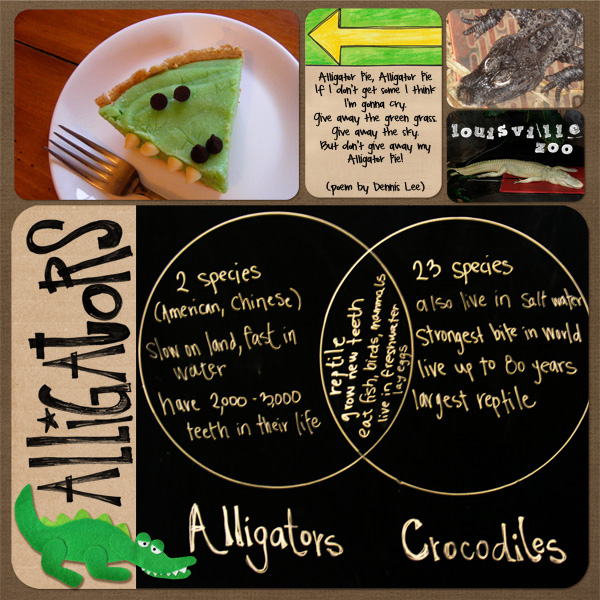 Alligator Pie, Alligator Pie
If I don't get some I think
I'm gonna cry.
Give away the green grass.
Give away the sky.
But don't give away my
Alligator Pie!
(poem by Dennis Lee)
louisville
zoo
AlliGAtoRS
2 species
(American, Chinese)
Slow on land, fast in
water
have 2,000-3,000
teeth in their life
reptile
grow new teeth
eat fish, birds, mammals
live in freshwater
lay eggs
23 species
also live in salt water
Strongest bite in world
live up to 80 years
largest reptile
Alligators
Crocodiles